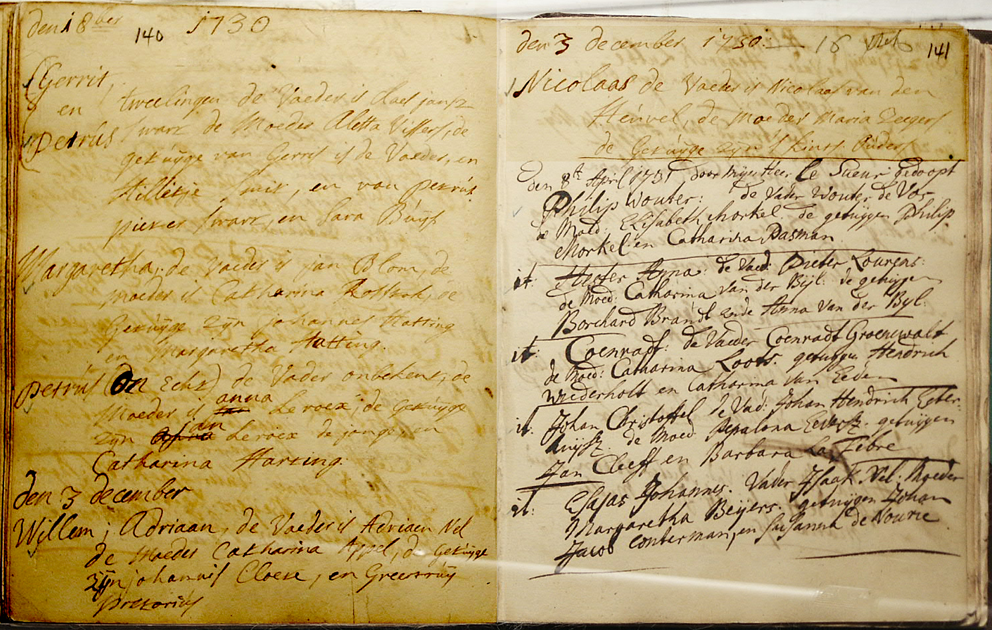 den 18 ber 140 1730
Gerrit,
en tweelingen de Vaeder is claes jansz
Petrus Swart de Moeder Aletta Vissers, de
getuijge van Gerrit is de Vaeder, en
smit en van petrus
pieter swart, en Sara Buijs
Margaretha, de Vaeder is jan Blom, de
moeder is Catharina de
getuijge zijn johannes Hatting
en Margaretha Hatting.
Petrus (On Echt) de Vader onbekent, de
Moeder is anna Le roex, de getuijge
zijn jan Le roex de jonge, en
Catharina Harting.
den 3 december
Willem, Adriaan, de Vaeder is Adriaen Nel
de Moeder Catharina Appel, de getuijge
zijn johannis Cloete, en Geertruij
Pretorius
den 3 december 1730. 16 141
Nicolaas de Vaeder is Nicolaas van den
Heuvel, de Moeder Maria Zeegers
de getuijge zijn 's kints ouders
Den 8th April 1731 door mijn Heer Le Sueur gedoopt
Philip Wouter: de Vader Wouter de Vos
de Moed: Elisabeth Morkel de getuijgen Philip
Morkel en Catharina Pasman
it: Hester Anna: de Vad: Pieter Lourens:
de Moed: Catharina van der Bijl: de getuijgen
Borchard Brand Ende Anna van der Byl:
it: Coenradt de Vaeder Coenradt Groenewalt
de Moed: Catharina Loots. getuijgen Hendrich
Wiederholt en Catharina van Eeden
it: Johan Christoffel de Vad: Johan Hendrich Ester:
huijse de Moed: getuijgen
Jan Cleeff en Barbara La Febre
it: Esajas Johannes. Vader Isaak Nel: Moeder
Margaretha Beijers. getuijgen Johan
Jacob Conterman, en Susanna de Nourie